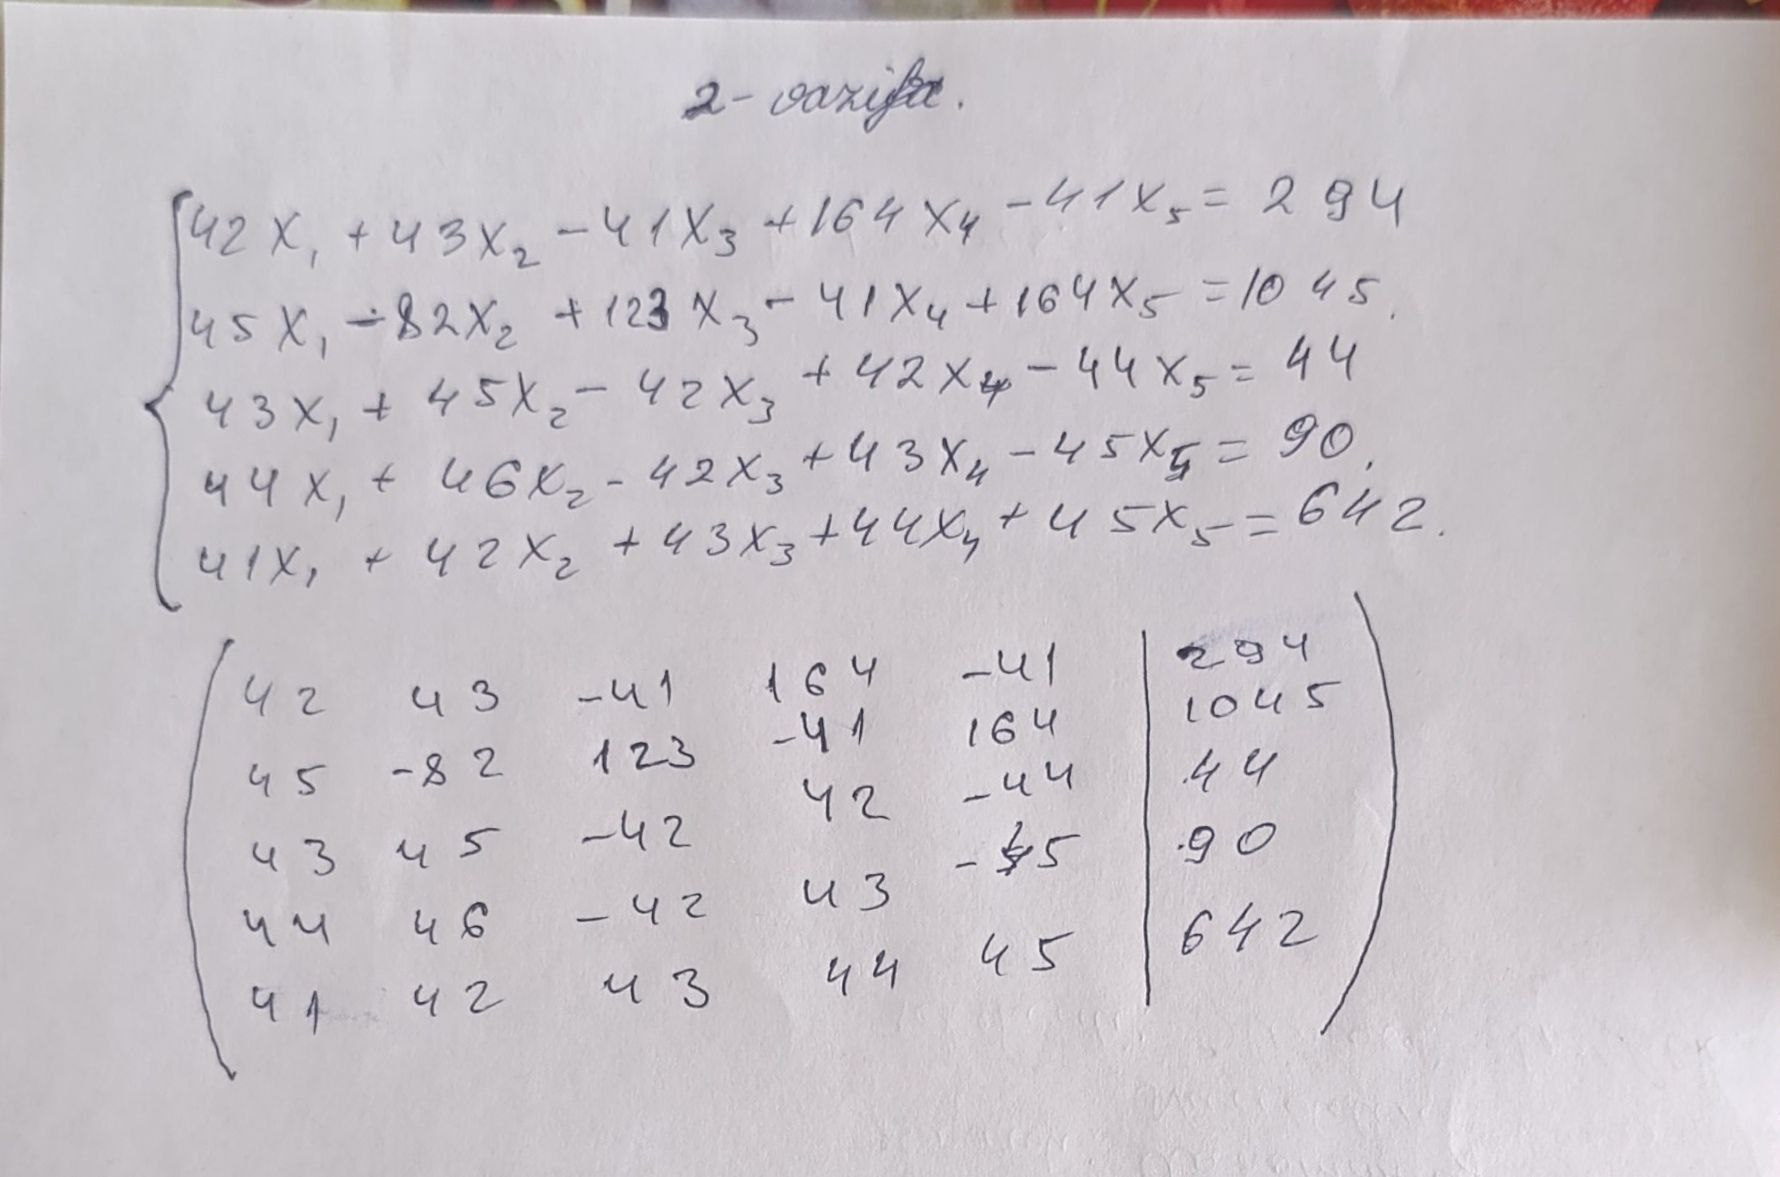 2-vazifa.
42x₁ + 43x₂ - 41x₃ + 164x₄ - 41x₅ = 294
45x₁ - 82x₂ + 123x₃ - 41x₄ + 164x₅ = 1045.
43x₁ + 45x₂ - 42x₃ + 42x₄ - 44x₅ = 44
44x₁ + 46x₂ - 42x₃ + 43x₄ - 45x₅ = 90.
41x₁ + 42x₂ + 43x₃ + 44x₄ + 45x₅ = 642.
42 43 -41 164 -41 | 294
45 -82 123 -41 164 | 1045
43 45 -42 42 -44 | 44
44 46 -42 43 -45 | 90
41 42 43 44 45 | 642